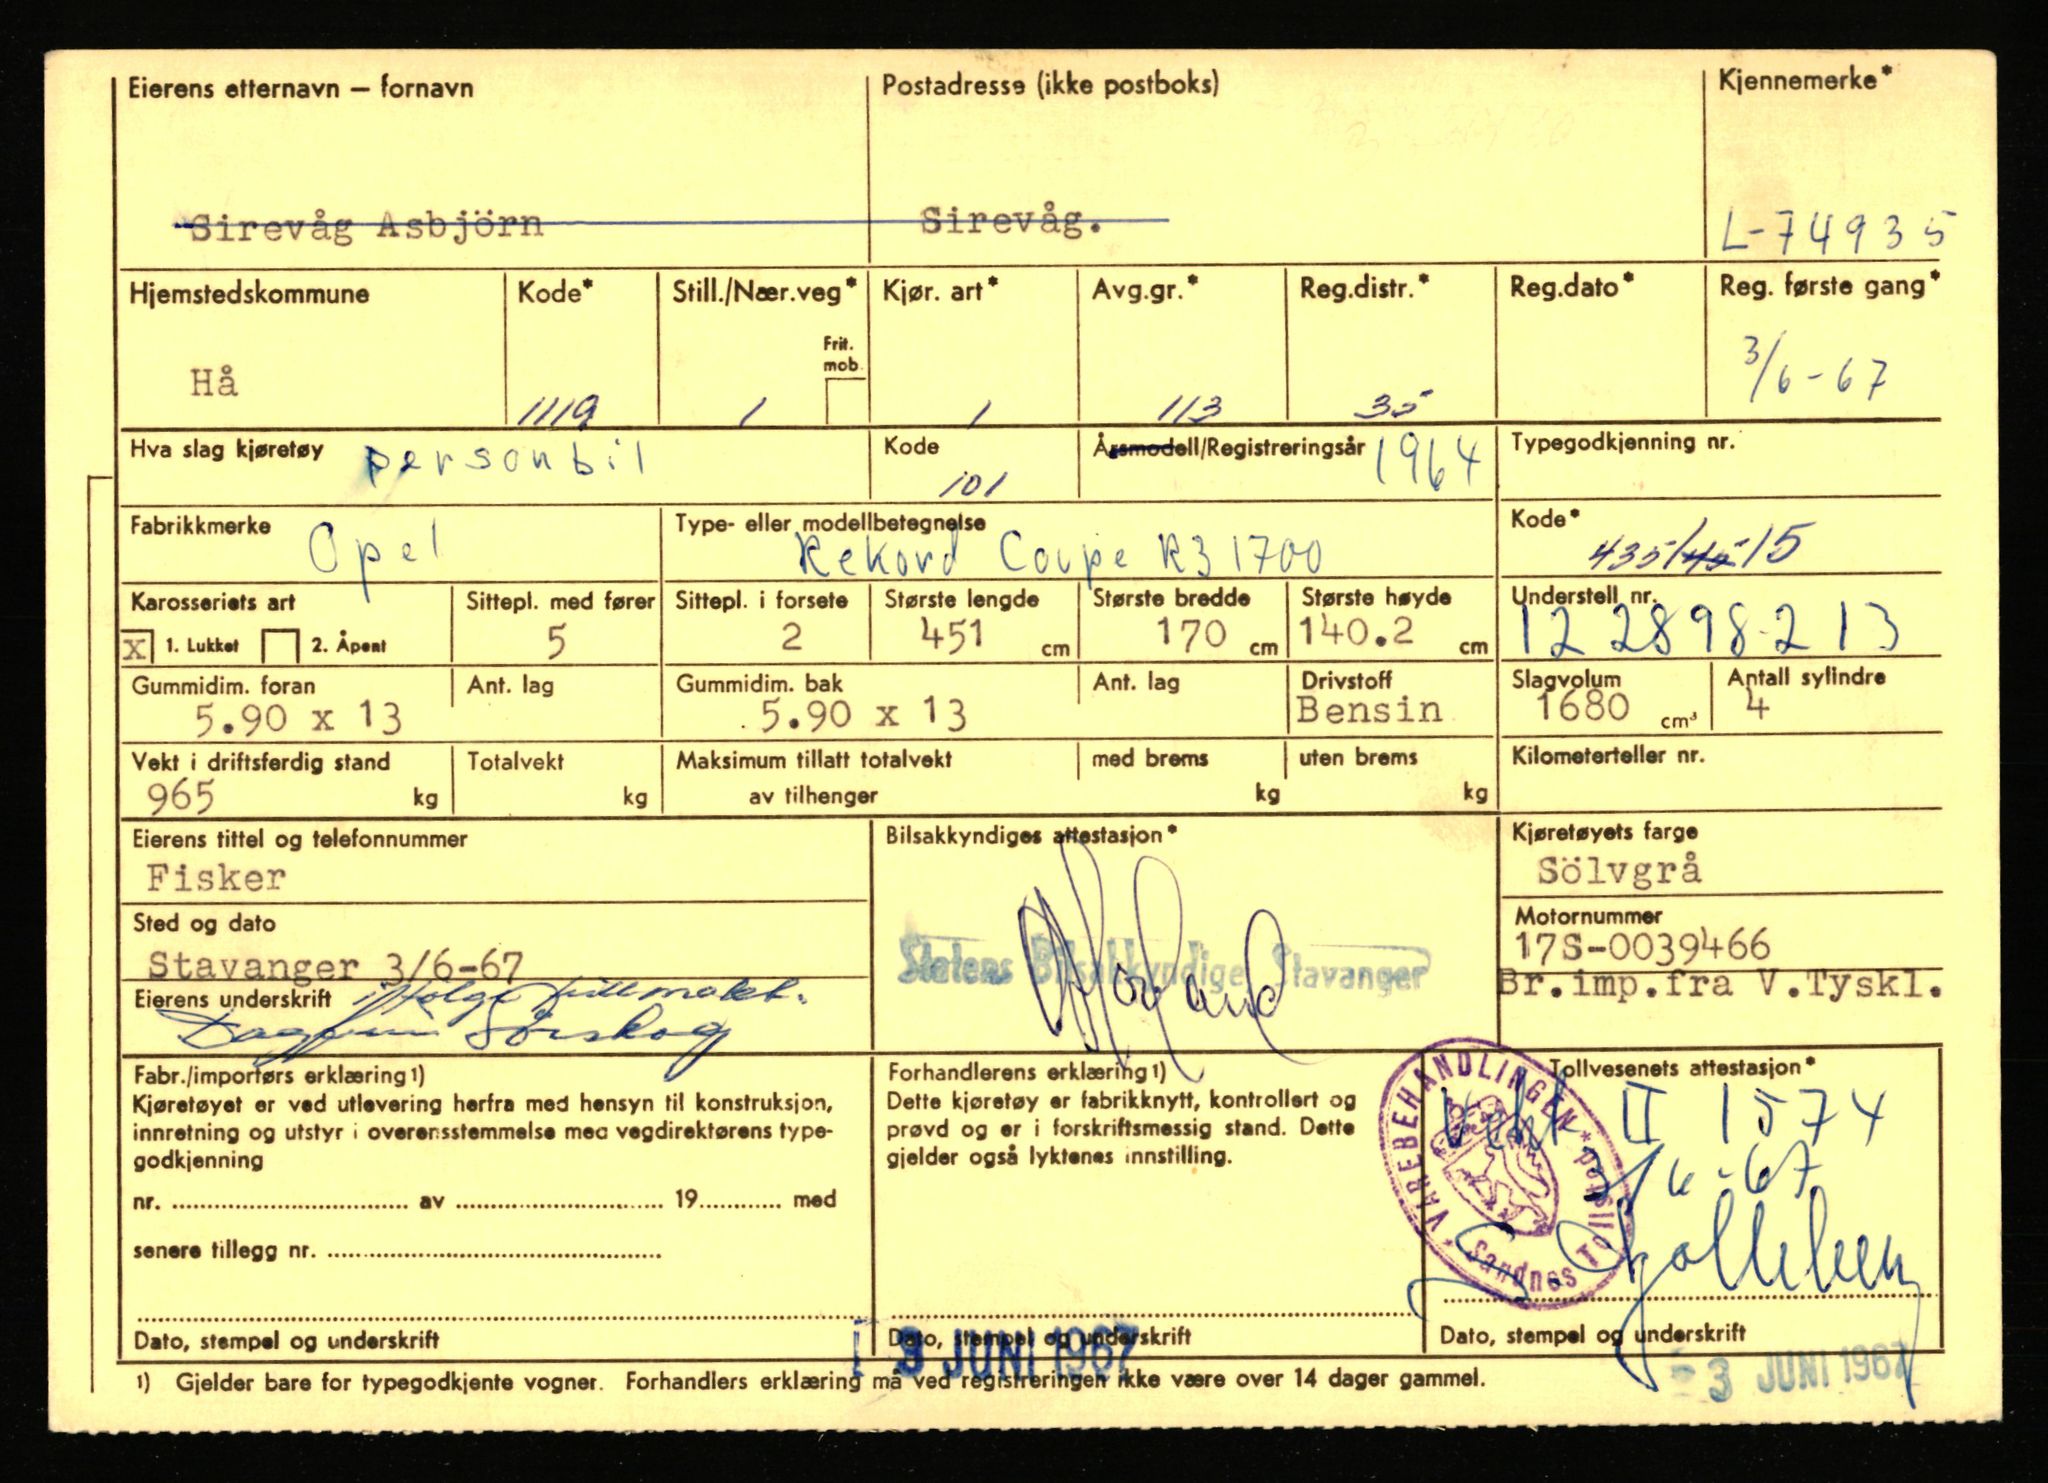 Eierens etternavn — fornavn Postadresse (ikke postboks) Kjennemerke*
Sirevåg Asbjörn Sirevåg. L-74935
Hjemstedskommune Kode* Still./Nær.veg* Kjør. art* Avg.gr.* Reg.distr.* Reg.dato* Reg. første gang*
Frit. mob.
Hå 1119 1 1 113 35 3/6-67
Hva slag kjøretøy personbil Kode 101 Årsmodell/Registreringsår 1964 Typegodkjenning nr.
Fabrikkmerke Type- eller modellbetegnelse Kode*
Opel Rekord Coupe R3 1700 435/45/5
Karosseriets art Sittepl. med fører Sittepl. i forsete Største lengde Største bredde Største høyde Understell nr.
X 1. Lukket 2. Åpent 5 2 451 cm 170 cm 140.2 cm 12 2898213
Gummidim. foran Ant. lag Gummidim. bak Ant. lag Drivstoff Slagvolum Antall sylindre
5.90 x 13 5.90 x 13 Bensin 1680 cm³ 4
Vekt i driftsferdig stand Totalvekt Maksimum tillatt totalvekt med brems uten brems Kilometerteller nr.
965 kg kg av tilhenger kg kg
Eierens tittel og telefonnummer Bilsakkyndiges attestasjon* Kjøretøyets farge
Fisker Sölvgrå
Sted og dato Motornummer
Stavanger 3/6-67 Statens Bilsakkyndige Stavanger 17S-0039466
Br.imp.fra V.Tyskl.
Eierens underskrift ifølge fullmakt.
Dagfinn Sørskog
Fabr./importørs erklæring 1) Forhandlerens erklæring 1) Tollvesenets attestasjon*
Kjøretøyet er ved utlevering herfra med hensyn til konstruksjon, Dette kjøretøy er fabrikknytt, kontrollert og II 1574
innretning og utstyr i overensstemmelse med vegdirektørens type- prøvd og er i forskriftsmessig stand. Dette
godkjenning gjelder også lyktenes innstilling. 3/6-67
VAREBEHANDLINGEN * Sandnes Tollsted *
nr. av 19 med
senere tillegg nr.
Dato, stempel og underskrift Dato, stempel og underskrift Dato, stempel og underskrift
3 JUNI 1967 - 3 JUNI 1967
1) Gjelder bare for typegodkjente vogner. Forhandlers erklæring må ved registreringen ikke være over 14 dager gammel.